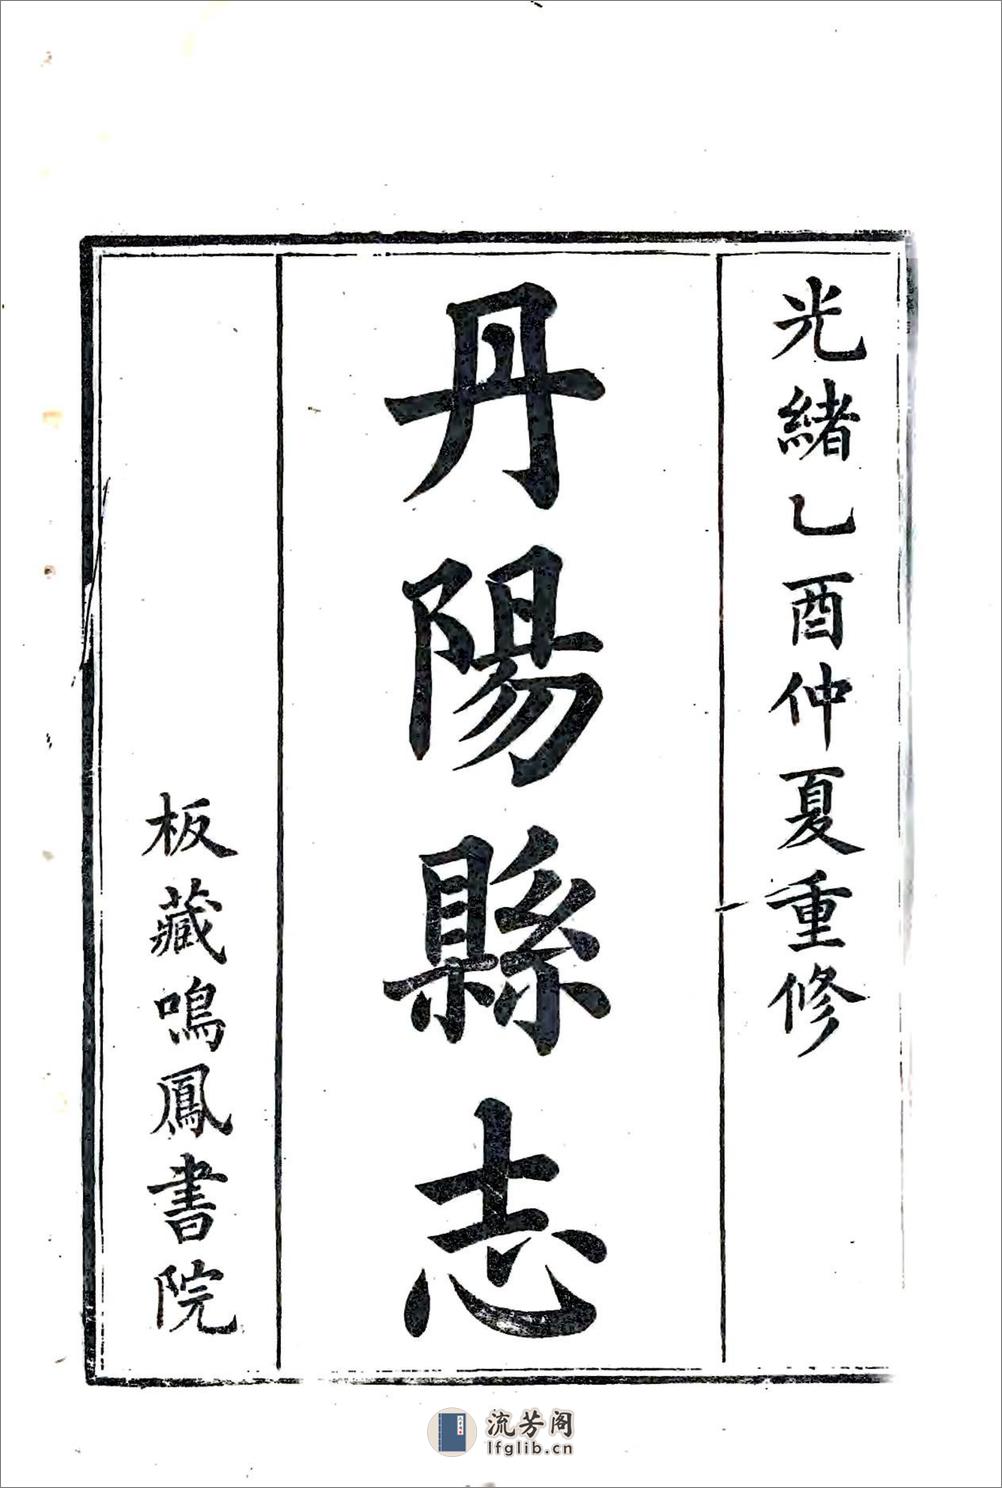 光緒乙酉仲夏重修
丹陽縣志
板藏鳴鳳書院
流芳阁
lfglib.cn